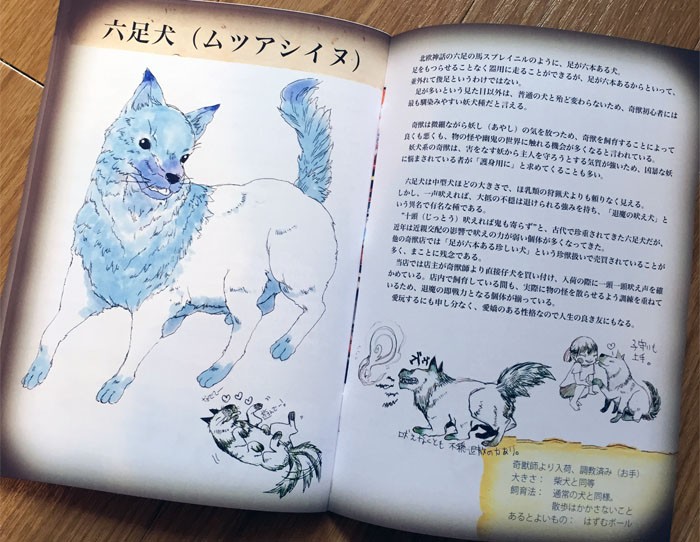 六足犬（ムツアシイヌ）
北欧神話の六足の馬スプレイニルのように、足が六本ある犬。
足をもつらせることなく器用に走ることができるが、足が六本あるからといって、
並外れて俊足というわけではない。
足が多いという見た目以外は、普通の犬と殆ど変わらないため、奇獣初心者には
最も馴染みやすい妖犬種だと言える。
奇獣は微弱ながら妖し（あやし）の気を放つため、奇獣を飼育することによって
良くも悪くも、物の怪や幽鬼の世界に触れる機会が多くなると言われている。
妖犬系の奇獣は、害をなす妖から主人を守ろうとする気質が強いため、凶暴な妖
に悩まされている者が「護身用に」と求めてくることも多い。
六足犬は中型犬ほどの大きさで、ほ乳類の狩猟犬よりも頼りなく見える。
しかし、一声吠えれば、大抵の不穏は退けられる強みを持ち、「退魔の吠え犬」と
いう異名で有名な種である。
"十頭（じっとう）吠えれば鬼も寄らず"と、古代で珍重されてきた六足犬だが、
近年は近親交配の影響で吠えの力が弱い個体が多くなってきた。
他の奇獣店では「足が六本ある珍しい犬」という珍獣扱いで売買されていることが
多く、まことに残念である。
当店では店主が奇獣師より直接仔犬を買い付け、入荷の際に一頭一頭吠え声を確
かめている。店内で飼育している間も、実際に物の怪を散らせるよう訓練を重ねて
いるため、退魔の即戦力となる個体が揃っている。
愛玩するにも申し分なく、愛嬌のある性格なので人生の良き友にもなる。
子守りも
上手。
奇獣師より入荷、調教済み（お手）
大きさ：　柴犬と同等
飼育法：　通常の犬と同様。
散歩はかかさないこと
あるとよいもの：　はずむボール